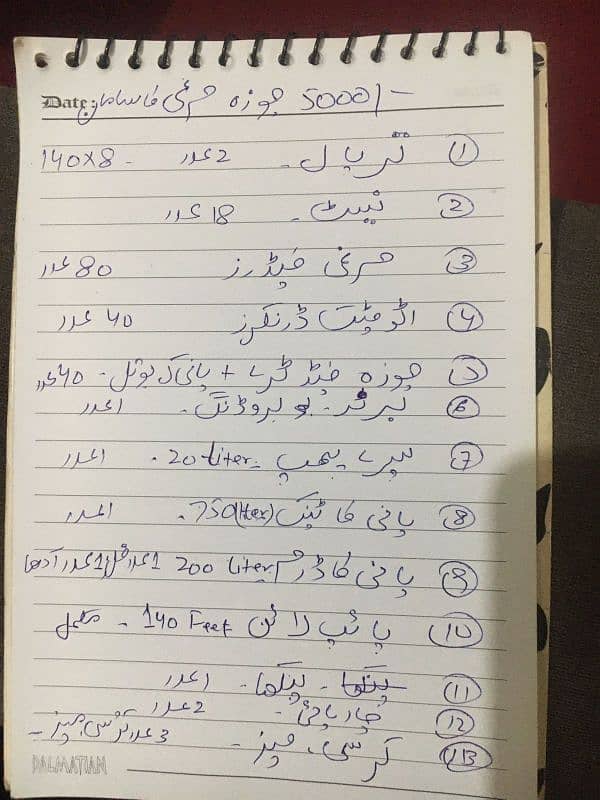 Date: 5000/- چوزہ مرغی کا سامان
① ترپال - 2 عدد - 140x8
② نیٹ - 18 عدد
③ مرغی فیڈرز 80 عدد
④ اٹومیٹک ڈرنکرز 40 عدد
⑤ چوزہ فیڈ ٹرے + پانی کی بوتل - 40 عدد
⑥ بروڈنگ - 1 عدد
⑦ سپرے پمپ - 20-Liter - 1 عدد
⑧ پانی کا ٹینک (750 liter) - 1 عدد
⑨ پانی کا ڈرم 200 Liter 1 عدد فل 1 عدد آدھا
⑩ پائپ لائن 140 Feet - مکمل
⑪ پنکھا - پنکھا - 1 عدد
⑫ چارپائی - 2 عدد
⑬ کرسی، میز - 3 عدد کرسی، میز -
DALMATIAN